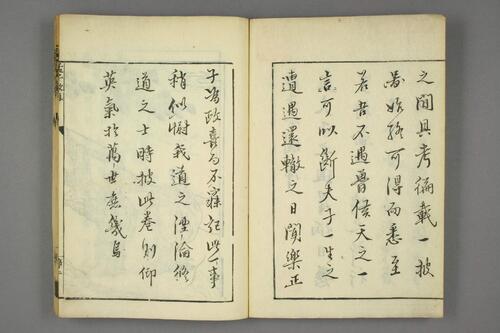 之間具考徧載一披
而始終可得而悉至
若吾不遇魯侯天之一
言可以斷夫子一生之
遭遇還轍之日聞樂正
子為政喜而不寐記此一事
稍似慨我道之湮淪後
道之士時披此卷則仰
英氣於萬世庶幾焉